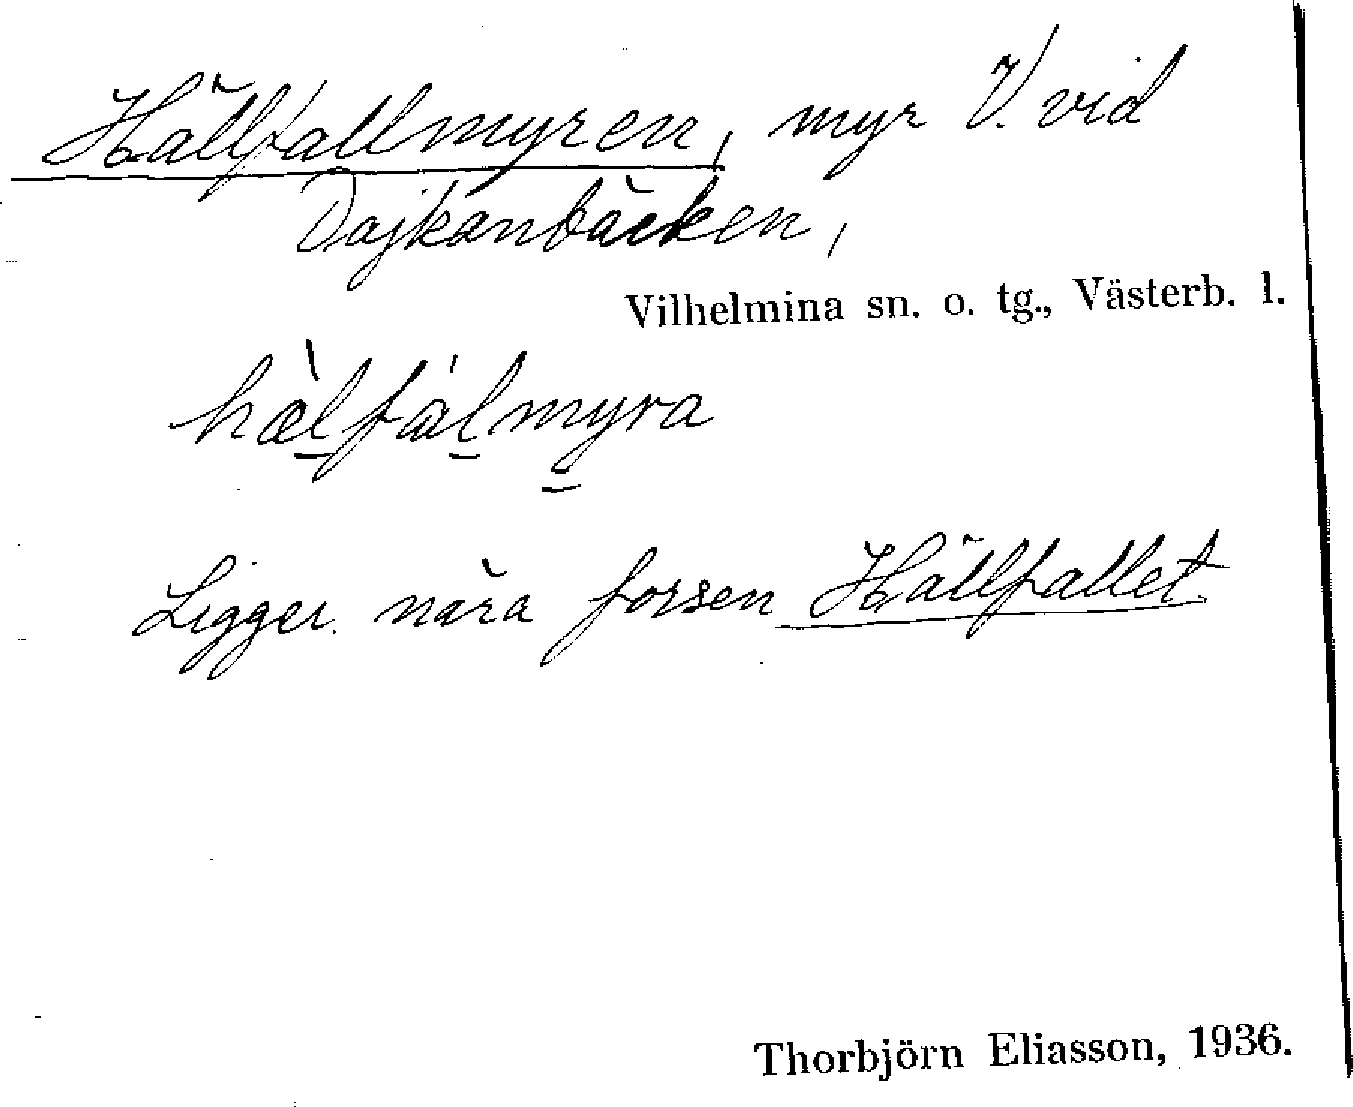 Hällfallmyren, myr V. vid
Dajkanbäcken,
Vilhelmina sn. o. tg., Västerb. l.
hæ̀lfálmyra
Ligger nära forsen Hällfallet.
Thorbjörn Eliasson, 1936.